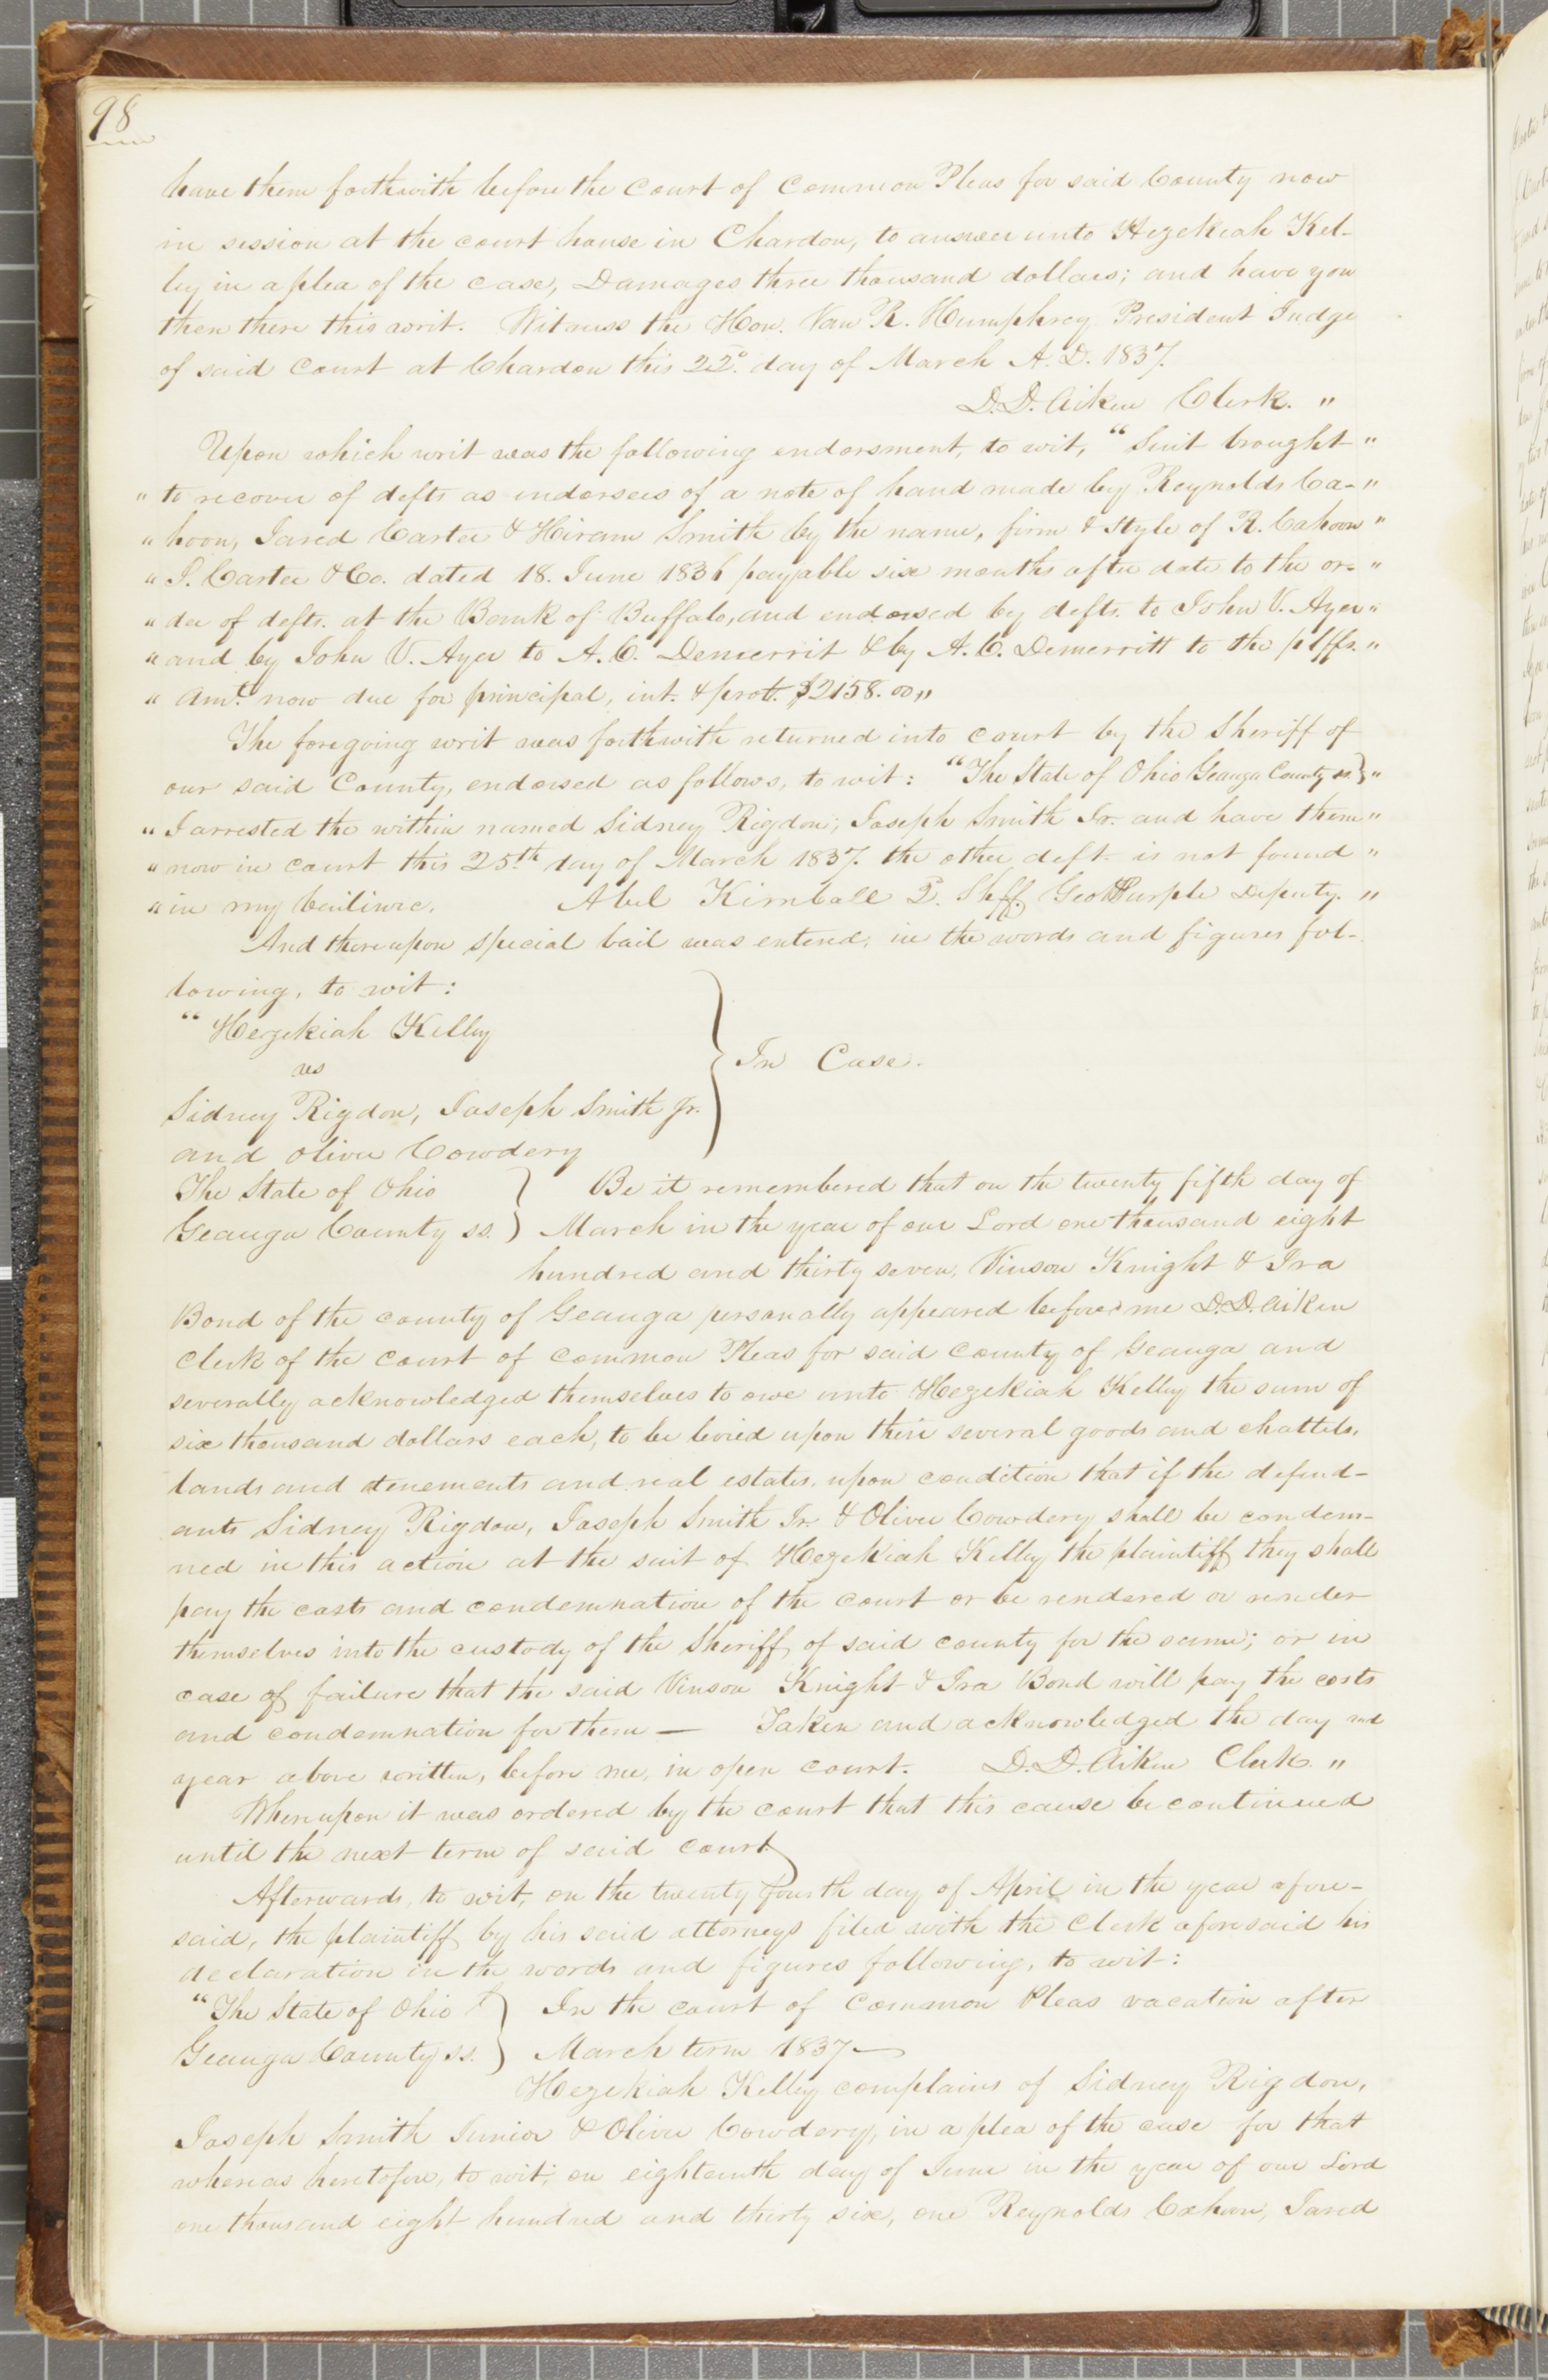 98
have them forthwith before the Court of Common Pleas for said County now
in session at the court house in Chardon, to answer unto Hezekiah Kel-
ley in a plea of the case, Damages three thousand dollars; and have you
then there this writ. Witness the Hon. Van R. Humphrey President Judge
of said Court at Chardon this 22d. day of March A. D. 1837.
D. D. Aiken Clerk. "
Upon which writ was the following endorsment, to wit, "Suit brought "
" to recover of defts as endorsers of a note of hand made by Reynolds Ca- "
" hoon, Jared Carter & Hiram Smith by the name, firm & style of R. Cahoon "
" J. Carter & Co. dated 18. June 1836 payable six months after date to the or- "
" der of defts. at the Bank of Buffalo, and endorsed by defts. to John V. Ayer "
" and by John V. Ayer to A. C. Demerrit & by A. C. Demerritt to the plffs. "
" Amt. now due for principal, int. & prot. $2158.00 "
The foregoing writ was forthwith returned into court by the Sheriff of
our said County, endorsed as follows, to wit: "The State of Ohio Geauga County ss} "
" I arrested the within named Sidney Rigdon, Joseph Smith Jr. and have them "
" now in court this 25th day of March 1837. the other deft. is not found "
" in my bailiwic. Abel Kimball 2. Shff. Geo Purple Deputy. "
And thereupon special bail was entered, in the words and figures fol-
lowing, to wit:
"Hezekiah Kelley
vs
In Case.
Sidney Rigdon, Joseph Smith Jr.
and Oliver Cowdery
The State of Ohio } Be it remembered that on the twenty fifth day of
Geauga County ss. } March in the year of our Lord one thousand eight
hundred and thirty seven, Vinson Knight & Ira
Bond of the county of Geauga personally appeared before me D. D. Aiken
Clerk of the court of common Pleas for said County of Geauga and
severally acknowledged themselves to owe unto Hezekiah Kelley the sum of
six thousand dollars each, to be levied upon their several goods and chattels,
lands and tenements and real estates, upon condition that if the defend-
ants Sidney Rigdon, Joseph Smith Jr. & Oliver Cowdery shall be condem-
ned in this action at the suit of Hezekiah Kelley the plaintiff they shall
pay the costs and condemnation of the court or be rendered or render
themselves into the custody of the Sheriff of said county for the same; or in
case of failure that the said Vinson Knight & Ira Bond will pay the costs
and condemnation for them — Taken and acknowledged the day and
year above written, before me, in open court. D. D. Aiken Clerk. "
Whereupon it was ordered by the court that this cause be continued
until the next term of said court.
Afterwards, to wit, on the twenty fourth day of April in the year afore-
said, the plaintiff by his said attorneys filed with the Clerk aforesaid his
declaration in the words and figures following, to wit:
"The State of Ohio } In the court of Common Pleas vacation after
Geauga County ss. } March term 1837 —
Hezekiah Kelley complains of Sidney Rigdon,
Joseph Smith Junior & Oliver Cowdery, in a plea of the case for that
whereas heretofore, to wit; on eighteenth day of June in the year of our Lord
one thousand eight hundred and thirty six, one Reynolds Cahoon, Jared